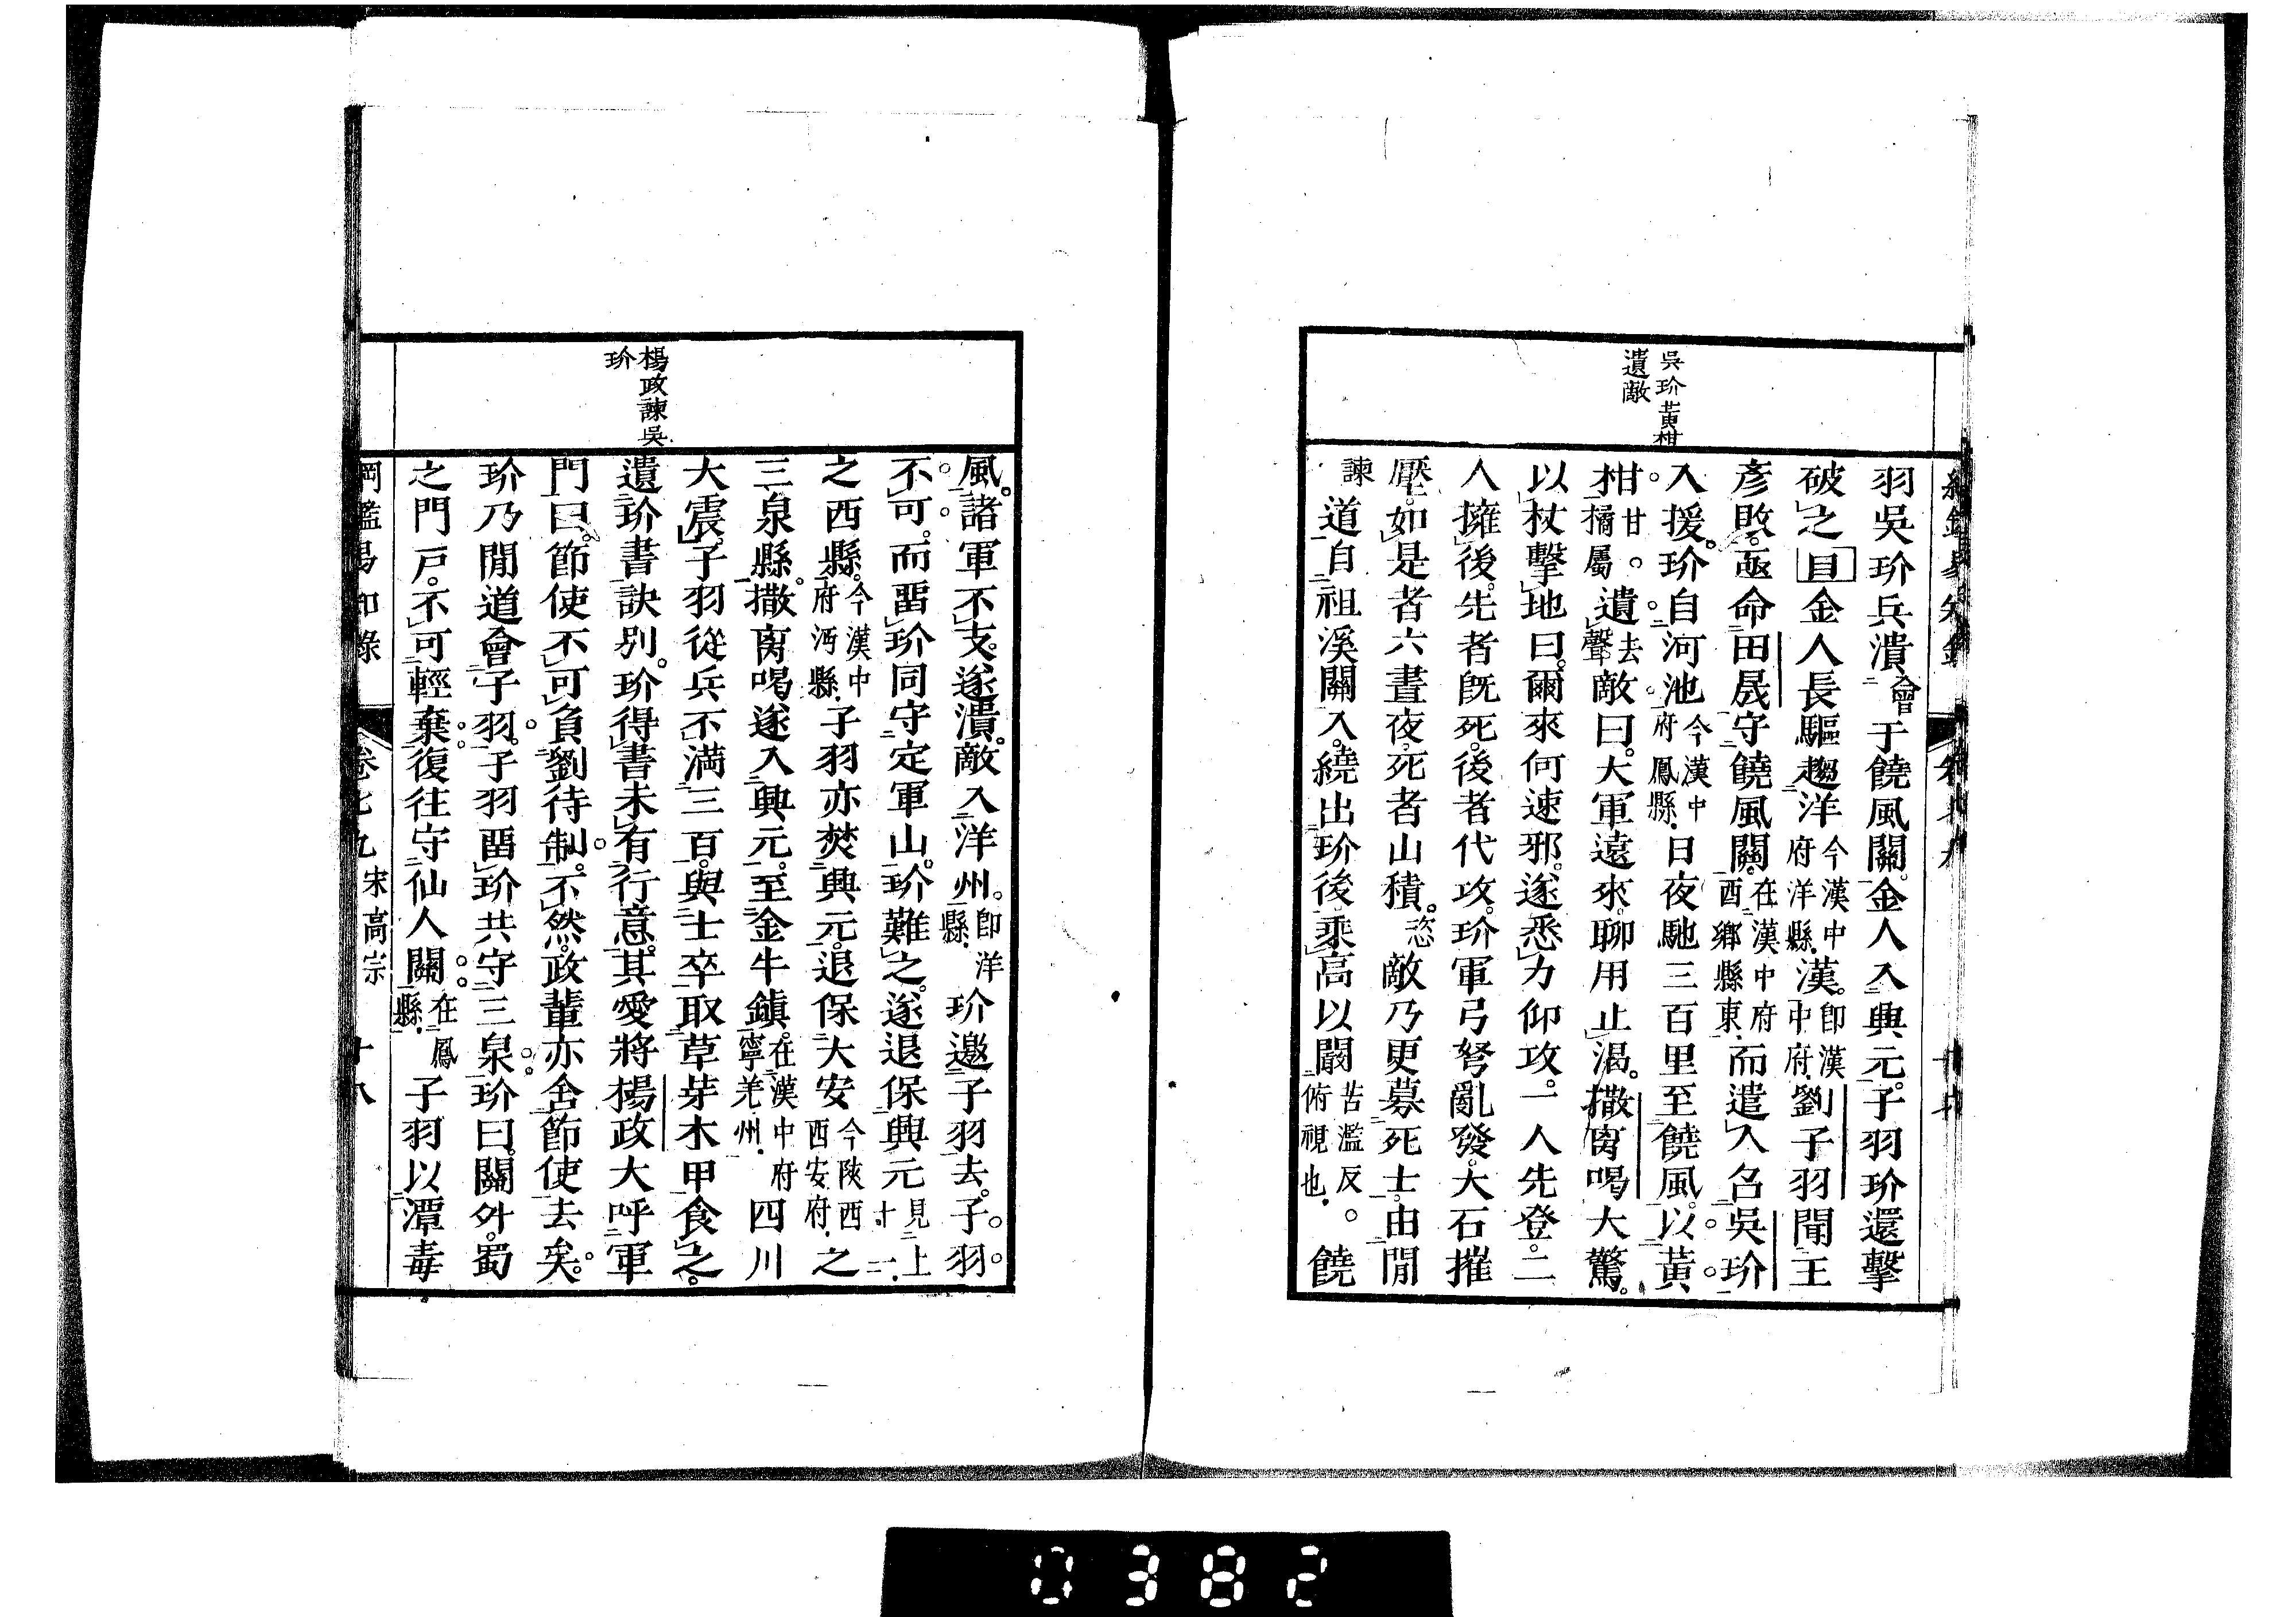 吳玠黃柑
遺敵
羽吳玠兵潰會于饒風關。金人入興元。子羽玠還擊
破之目金人長驅趨洋今漢中府洋縣漢。卽漢中府劉子羽聞王
彥敗。亟命田晟守饒風關。在漢中府西鄉縣東而遣人召吳玠
入援。玠自河池今漢中府鳳縣日夜馳三百里至饒風。以黃
柑甘橘屬。遺去聲敵曰。大軍遠來。聊用止渴。撒离喝大驚。
以杖擊地曰。爾來何速邪。遂悉力仰攻。一人先登。二
人擁後。先者旣死。後者代攻。玠軍弓弩亂發。大石摧
壓。如是者六晝夜。死者山積。敵乃更募死士。由閒
諫道自祖溪關入。繞出玠後。乘高以闞苦濫反俯視也。饒
楊政諫吳
玠
風。諸軍不支。遂潰。敵入洋州。卽洋縣玠邀子羽去。子羽
不可。而畱玠同守定軍山。玠難之。遂退保興元見上十二
之西縣。今漢中府沔縣子羽亦焚興元。退保大安今陝西西安府之
三泉縣。撒离喝遂入興元。至金牛鎭。在漢中府寧羌州四川
大震。子羽從兵不滿三百。與士卒取草芽木甲食之。
遺玠書訣別。玠得書未有行意。其愛將楊政大呼軍
門曰。節使不可負劉待制。不然。政輩亦舍節使去矣。
玠乃閒道會子羽。子羽畱玠共守三泉。玠曰。關外。蜀
之門戶。不可輕棄。復往守仙人關。在鳳縣子羽以潭毒
綱鑑易知錄 卷七九 宋高宗 十八
0382